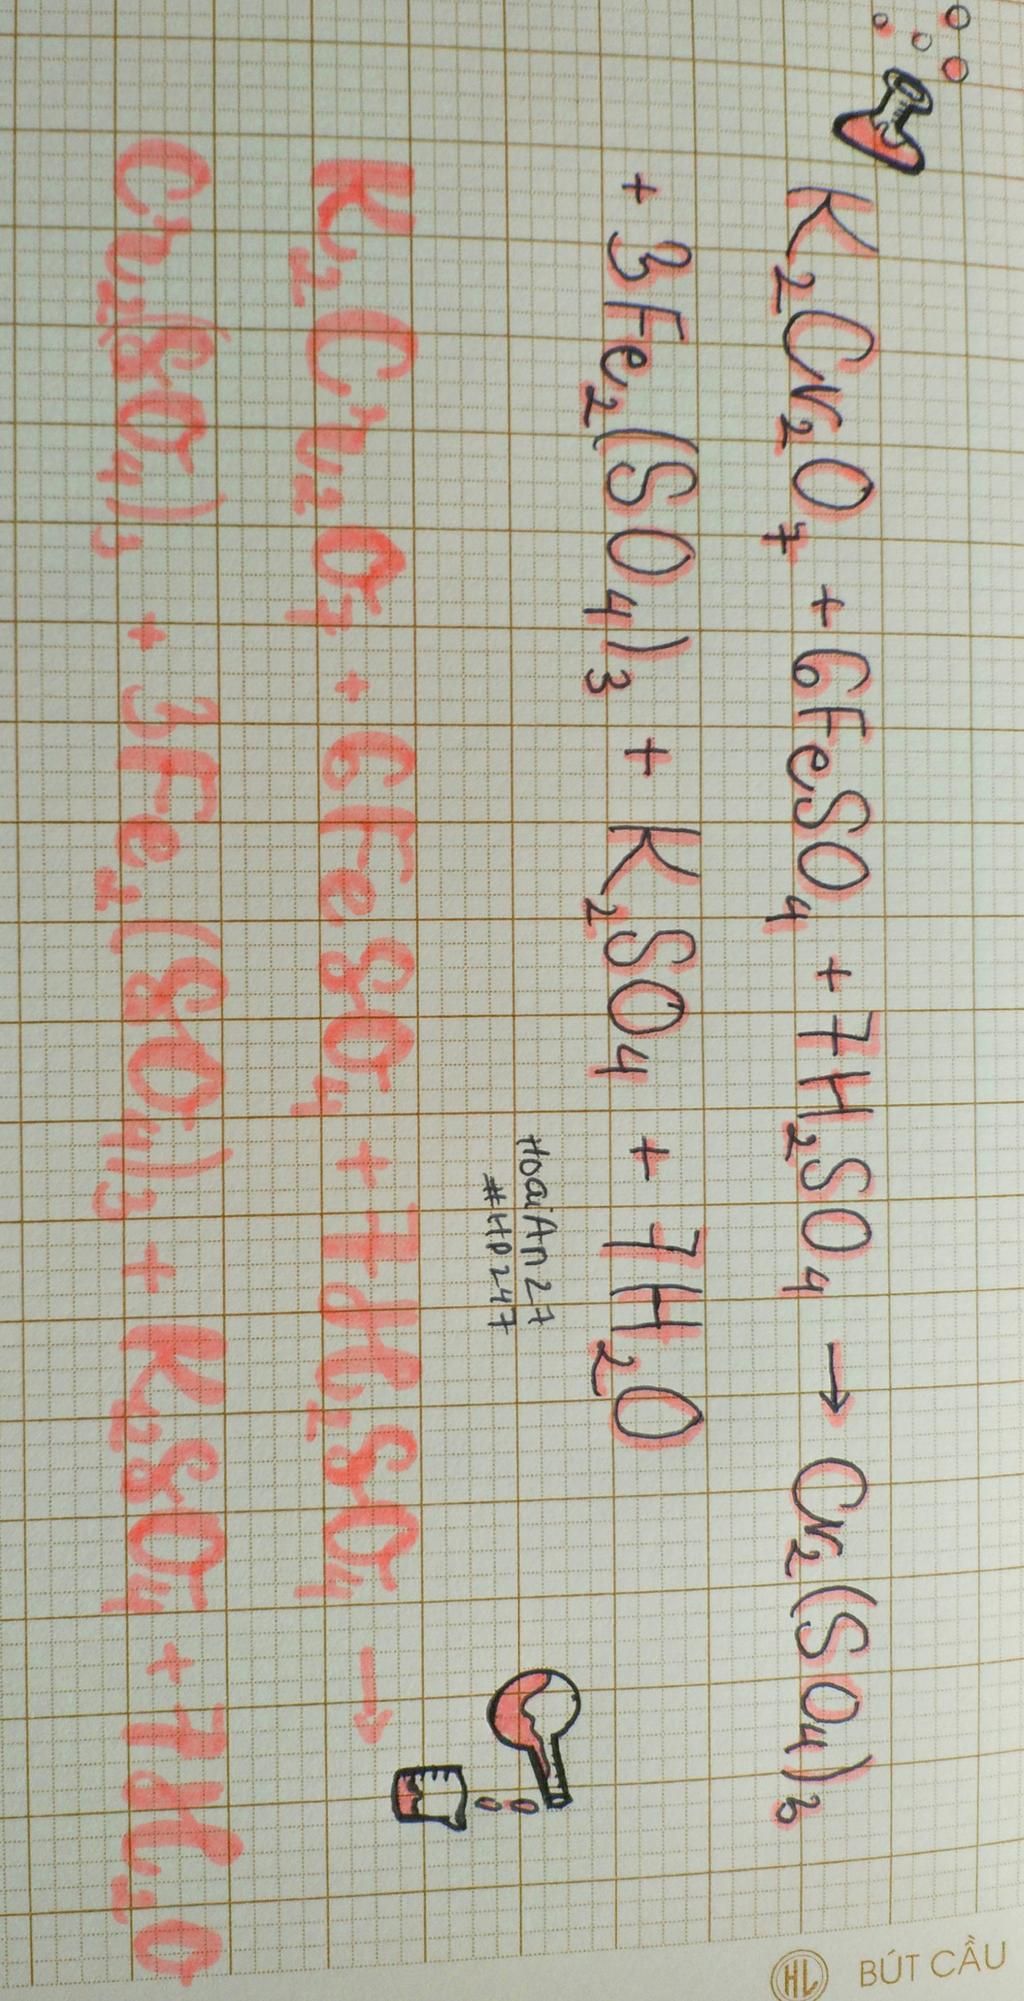 K₂Cr₂O₇ + 6FeSO₄ + 7H₂SO₄ → Cr₂(SO₄)₃
+ 3Fe₂(SO₄)₃ + K₂SO₄ + 7H₂O
HoaiAn27
#HD247
K₂Cr₂O₇ + 6FeSO₄ + 7H₂SO₄ →
Cr₂(SO₄)₃ + 3Fe₂(SO₄)₃ + K₂SO₄ + 7H₂O
HL BÚT CẦU